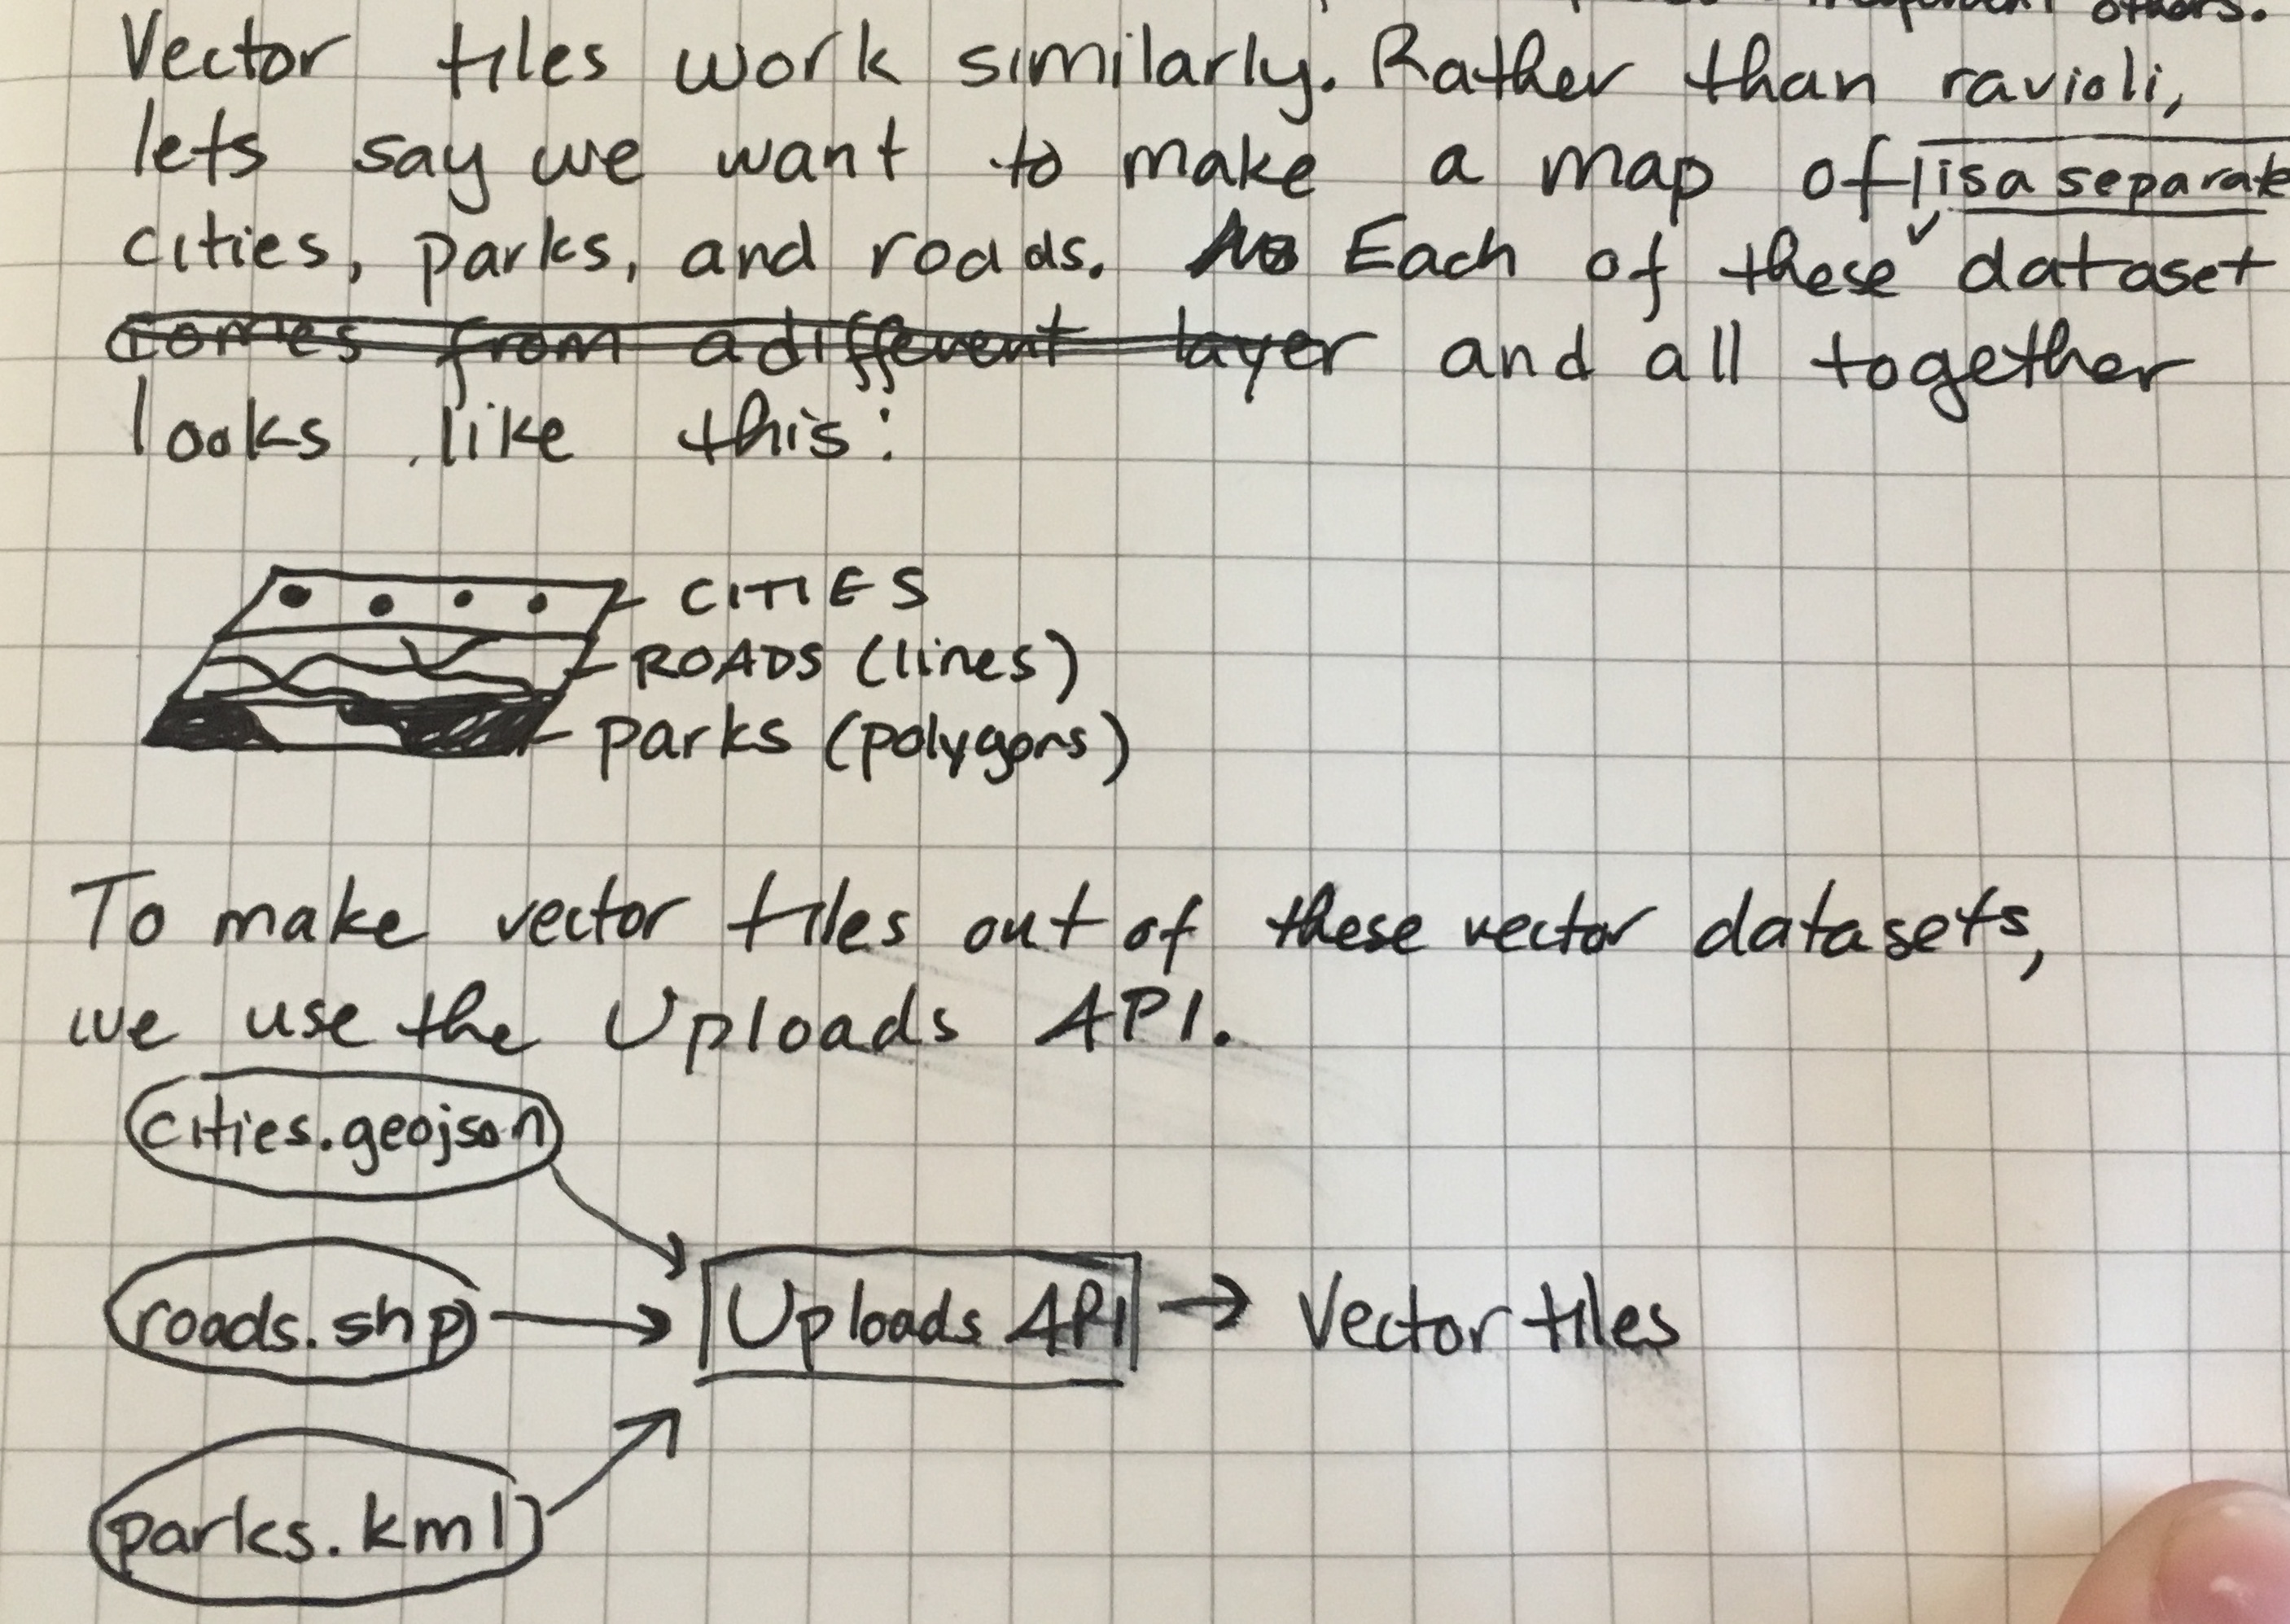 others.
Vector tiles work similarly. Rather than ravioli,
lets say we want to make a map of
is a separate
cities, parks, and roads. Each of these dataset
comes from a different layer and all together
looks like this:
CITIES
ROADS (lines)
parks (polygons)
To make vector tiles out of these vector datasets,
we use the Uploads API.
cities.geojson
roads.shp
Uploads API
Vector tiles
parks.kml